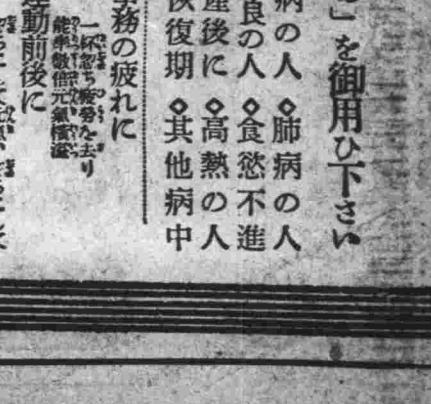 」を御用ひ下さい
病の人 ◇肺病の人
良の人 ◇食慾不進
産後に ◇高熱の人
恢復期 ◇其他病中
事務の疲れに
一杯忽ち疲勞を去り
能率數倍元氣橫溢
運動前後に